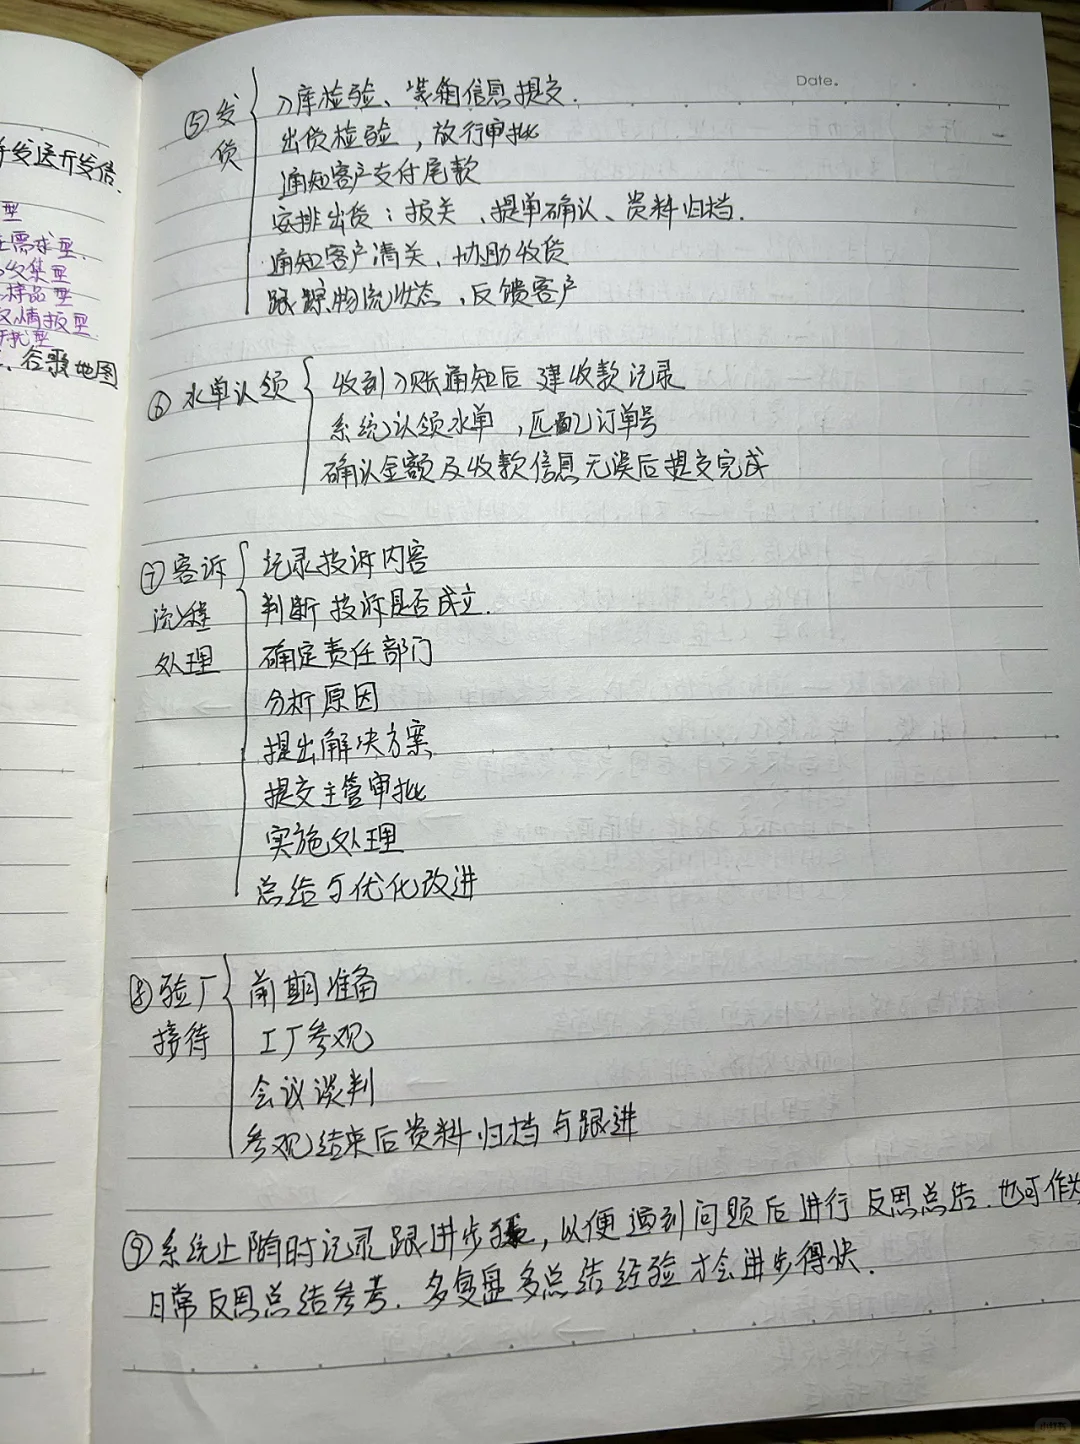 Date.
⑤发货
入库检验、装箱信息提交.
出货检验,放行审批
通知客户支付尾款
安排出货:报关、提单确认、资料归档.
通知客户清关、协助收货
跟踪物流状态,反馈客户
⑥水单认领
收到入账通知后建收款记录
系统认领水单,匹配订单号
确认金额及收款信息无误后提交完成
⑦客诉
流程
处理
记录投诉内容
判断投诉是否成立.
确定责任部门
分析原因
提出解决方案.
提交主管审批
实施处理
总结与优化改进
⑧验厂
接待
前期准备
工厂参观
会议谈判
参观结束后资料归档与跟进
⑨系统上随时记录跟进步骤,以便遇到问题后进行反思总结.也可作为
日常反思总结参考.多复盘多总结经验才会进步得快.
发送开发信.
型
需求型.
收集型
样品型
情报型
扰型
、谷歌地图
小红书